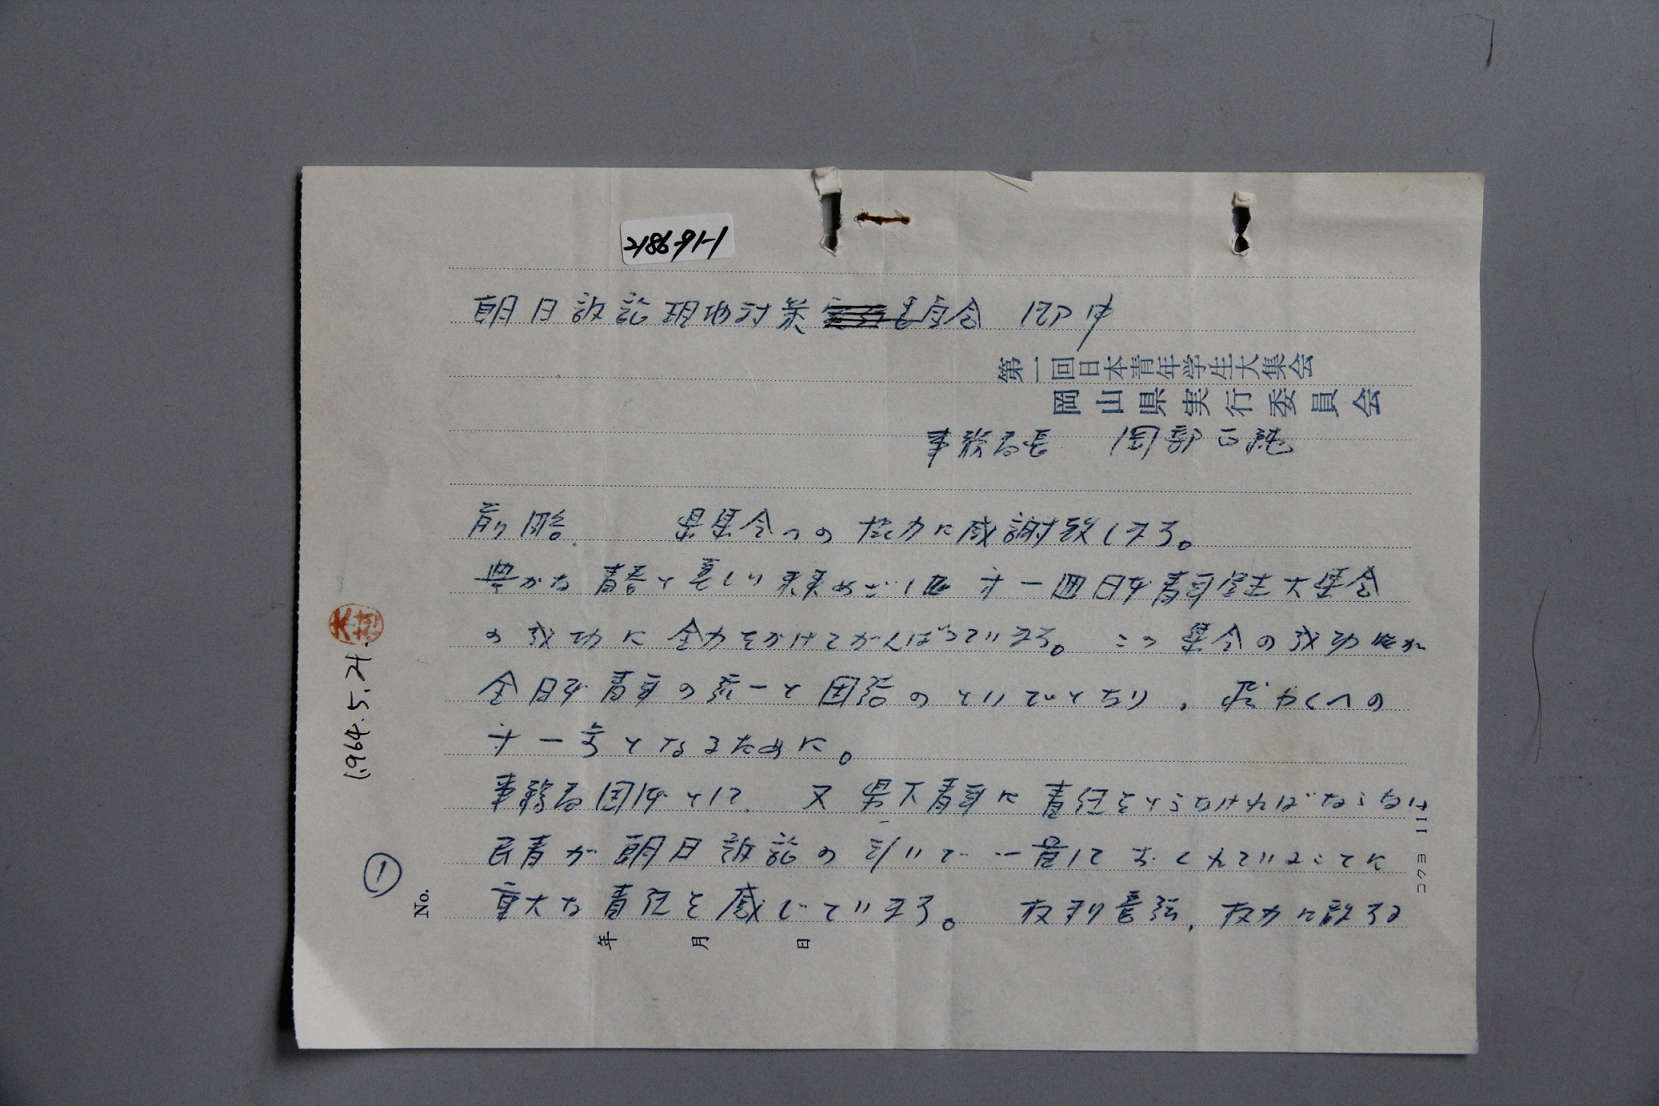 2186-91-1
朝日訴訟現地対策委員会 御中
第一回日本青年学生大集会
岡山県実行委員会
事務局長 岡部正純
前略. 県集会への協力に感謝致します。
豊かな青春と美しい未来めざし 才一回日本青年学生大集会
の成功に全力をかけてがんばっています。 この集会の成功が
全日本青年の統一と団結のといでとなり、 への
才一歩となるために。
事務局団体として. 又県下青年に責任をとらなければならない
民青が朝日訴訟の 一貫して おくれていることに
重大な責任を感じています。 権力に
大村
1964.5.21.
①
No.
年 月 日
コクヨ 11